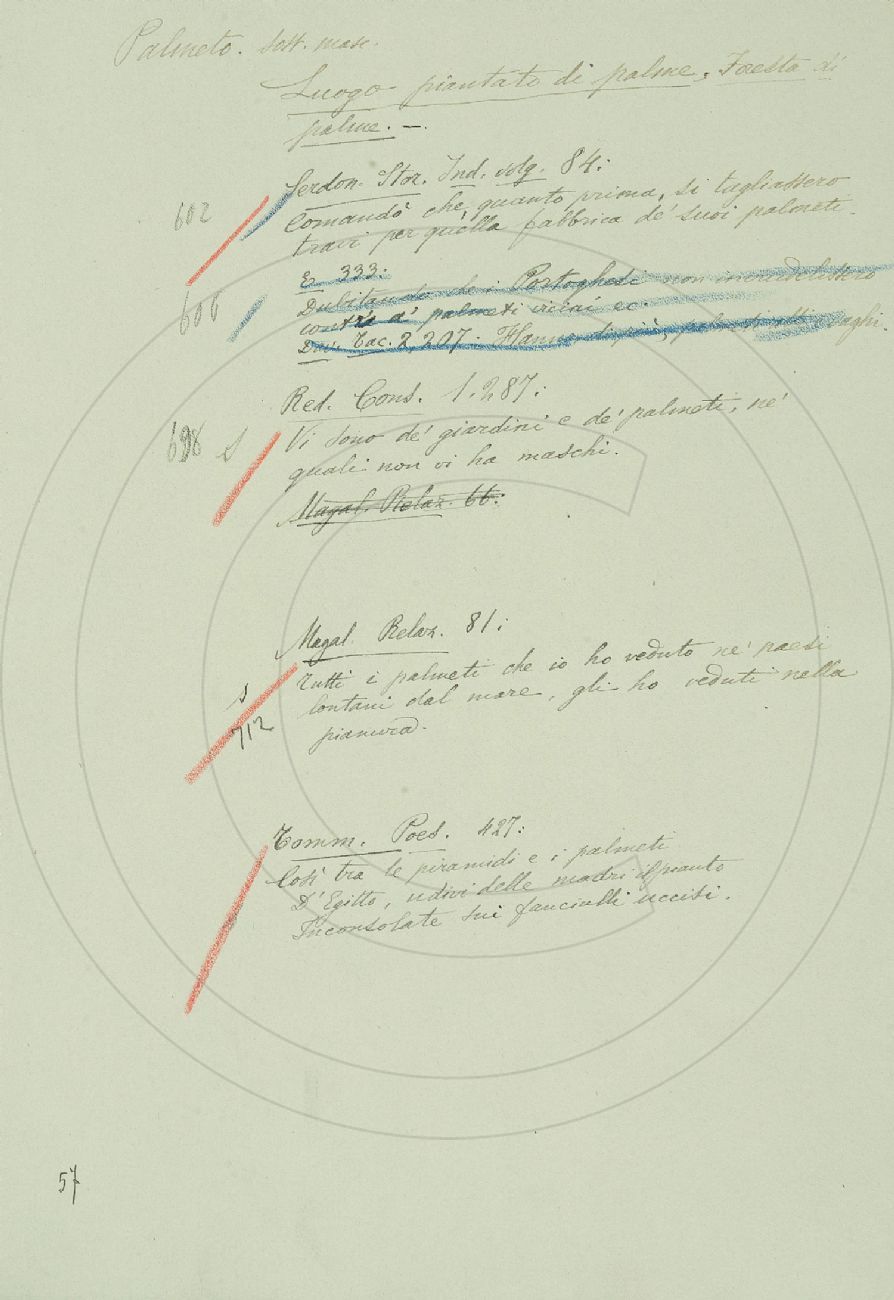 Palmeto. Sost. masc.
Luogo piantato di palme, Foresta di
palme. —.
Serdon. Stor. Ind. volg. 84:
602
Comandò che, quanto prima, si tagliassero
travi per quella fabbrica de' suoi palmeti.
E 333.
606
Dubitando che i Portoghesi non incrudelissero
contra a' palmeti vicini ec.
Dav. Tac. 2, 207: Hanno di più, palmeti alti vaghi.
Red. Cons. 1. 287:
698 S
Vi sono de' giardini e de' palmeti, ne'
quali non vi ha maschi.
Magal. Relaz. 66:
Magal. Relaz. 81:
Tutti i palmeti che io ho veduto ne' paesi
S
lontani dal mare, gli ho veduti nella
712
pianura.
Tomm. Poes. 427:
Così tra le piramidi e i palmeti
D'Egitto, udivi delle madri il pianto
Inconsolate sui fanciulli uccisi.
57